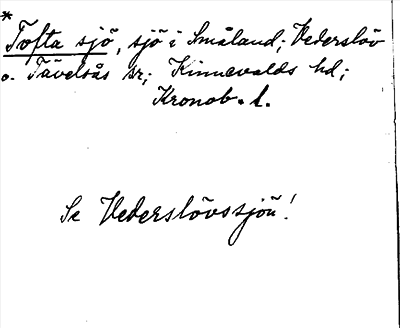 *
Tofta sjö, sjö i Småland; Vederslöv
o. Tävelsås sr; Kinnevalds hd;
Kronob. l.
Se Vederslövssjön!